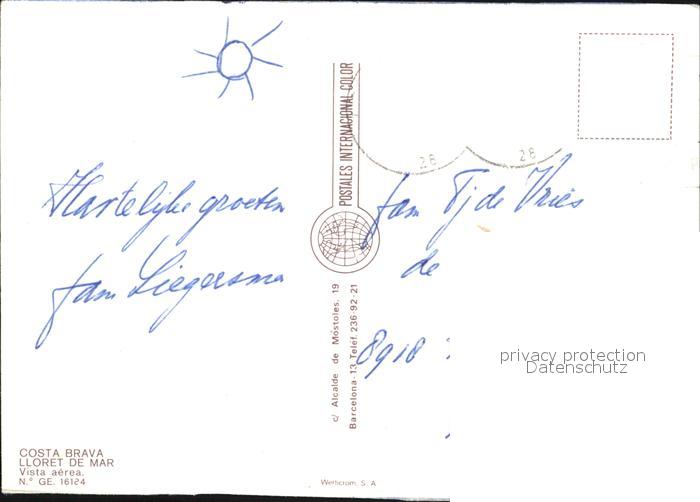 Hartelijke groeten
fam Siegersma
fam Tj de Vries
de
8918
28
28
POSTALES INTERNACIONAL COLOR
c/ Alcalde de Móstoles, 19
Barcelona-13 Teléf. 236-92-21
privacy protection
Datenschutz
COSTA BRAVA
LLORET DE MAR
Vista aérea.
N.° GE. 16124
Werticrom, S. A